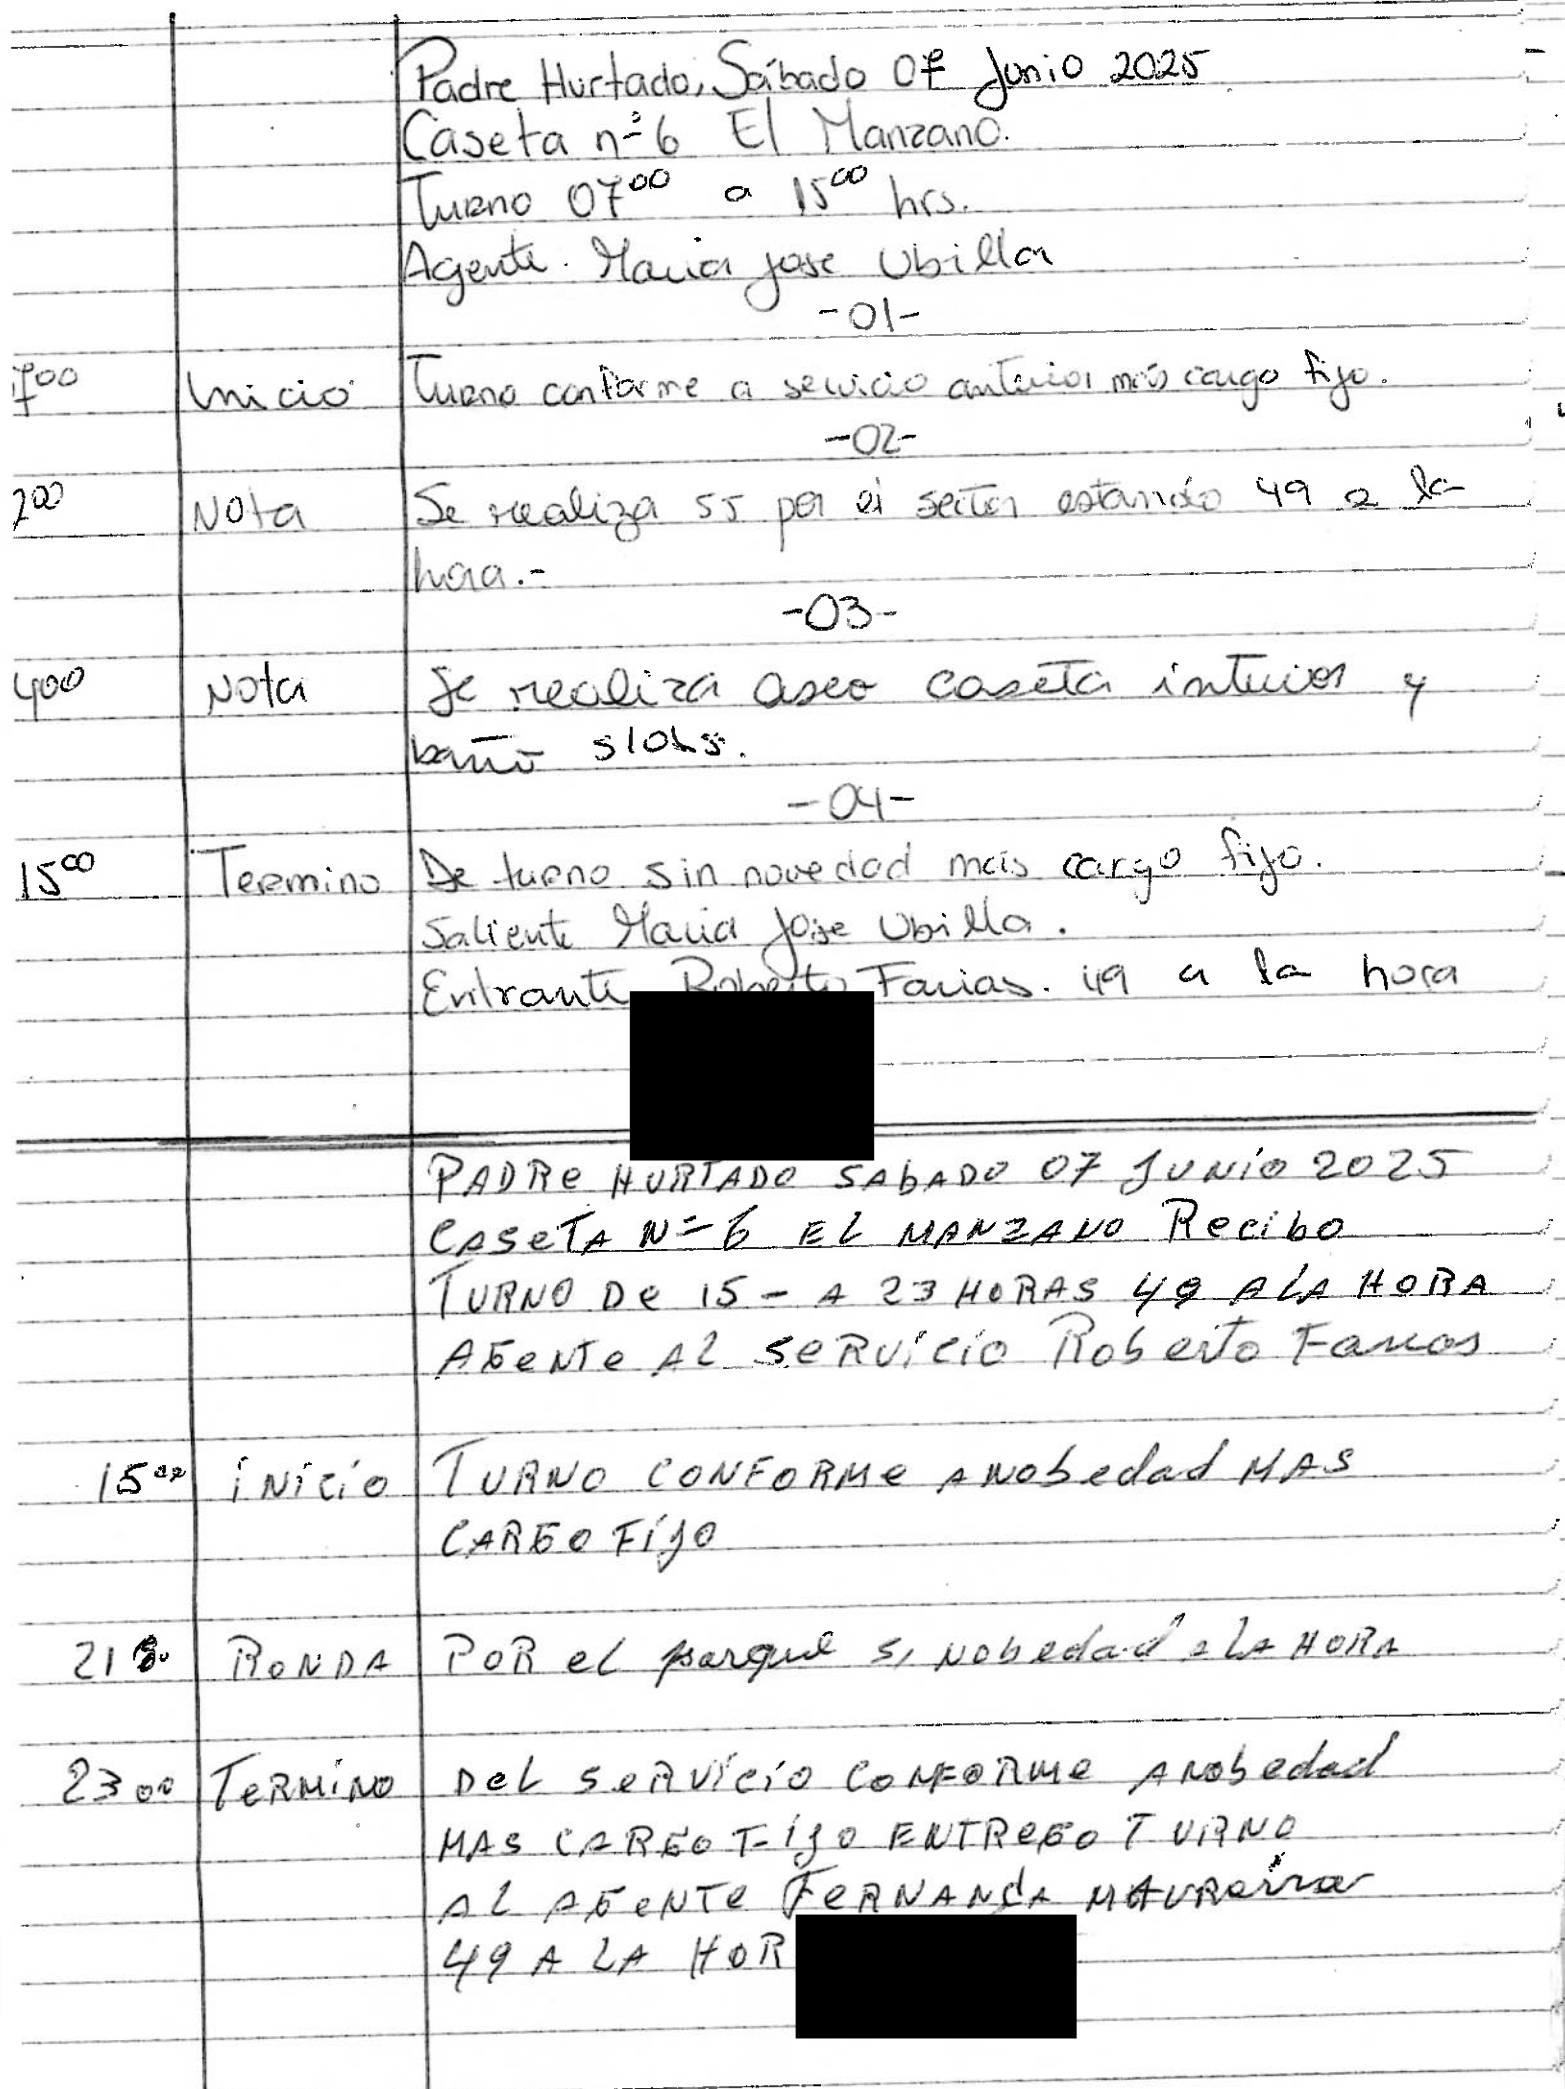 Padre Hurtado, Sábado 07 Junio 2025
Caseta n=6 El Manzano.
Turno 07⁰⁰ a 15⁰⁰ hrs.
Agente. Maria jose Ubilla
-01-
7⁰⁰ Inicio Turno conforme a servicio anterior más cargo fijo.
-02-
2⁰⁰ Nota Se realiza 55 por el sector estando 49 a la
hora.-
-03-
4⁰⁰ Nota Se realiza aseo caseta interior y
baño s/obs.
-04-
15⁰⁰ Termino De turno sin novedad más cargo fijo.
Saliente Maria Jose Ubilla.
Entrante Roberto Farias. 49 a la hora
PADRE HURTADO SABADO 07 JUNIO 2025
CASETA N=6 EL MANZANO Recibo
TURNO De 15 - A 23 HORAS 49 A LA HORA
AGENTE AL SERVICIO Roberto Farias
15⁰⁰ INICIO TURNO CONFORME A NObedad MAS
CARGO FIJO
21 RONDA POR el parque s, Nobedad a LA HORA
23⁰⁰ TERMINO DEL SERVICIO CONFORME A Nobedad
MAS CARGO FIJO ENTREGO TURNO
AL AGENTE FERNANDA MAUREIRA
49 A LA HOR